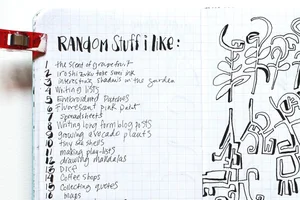 RANDOM Stuff i like:
1 the scent of grapefruit
2 iroshizuku take sumi ink
3 interesting shadows in the garden
4 writing lists
5 Embroidery Patches
6 Fluoresant pink paint
7 spreadsheets
8 Writing long form blog posts
9 growing avocado plants
10 tiny sea shells
11 making play-lists
12 drawing mandalas
13 Dice
14 Coffee shops
15 Collecting quotes
16 Maps